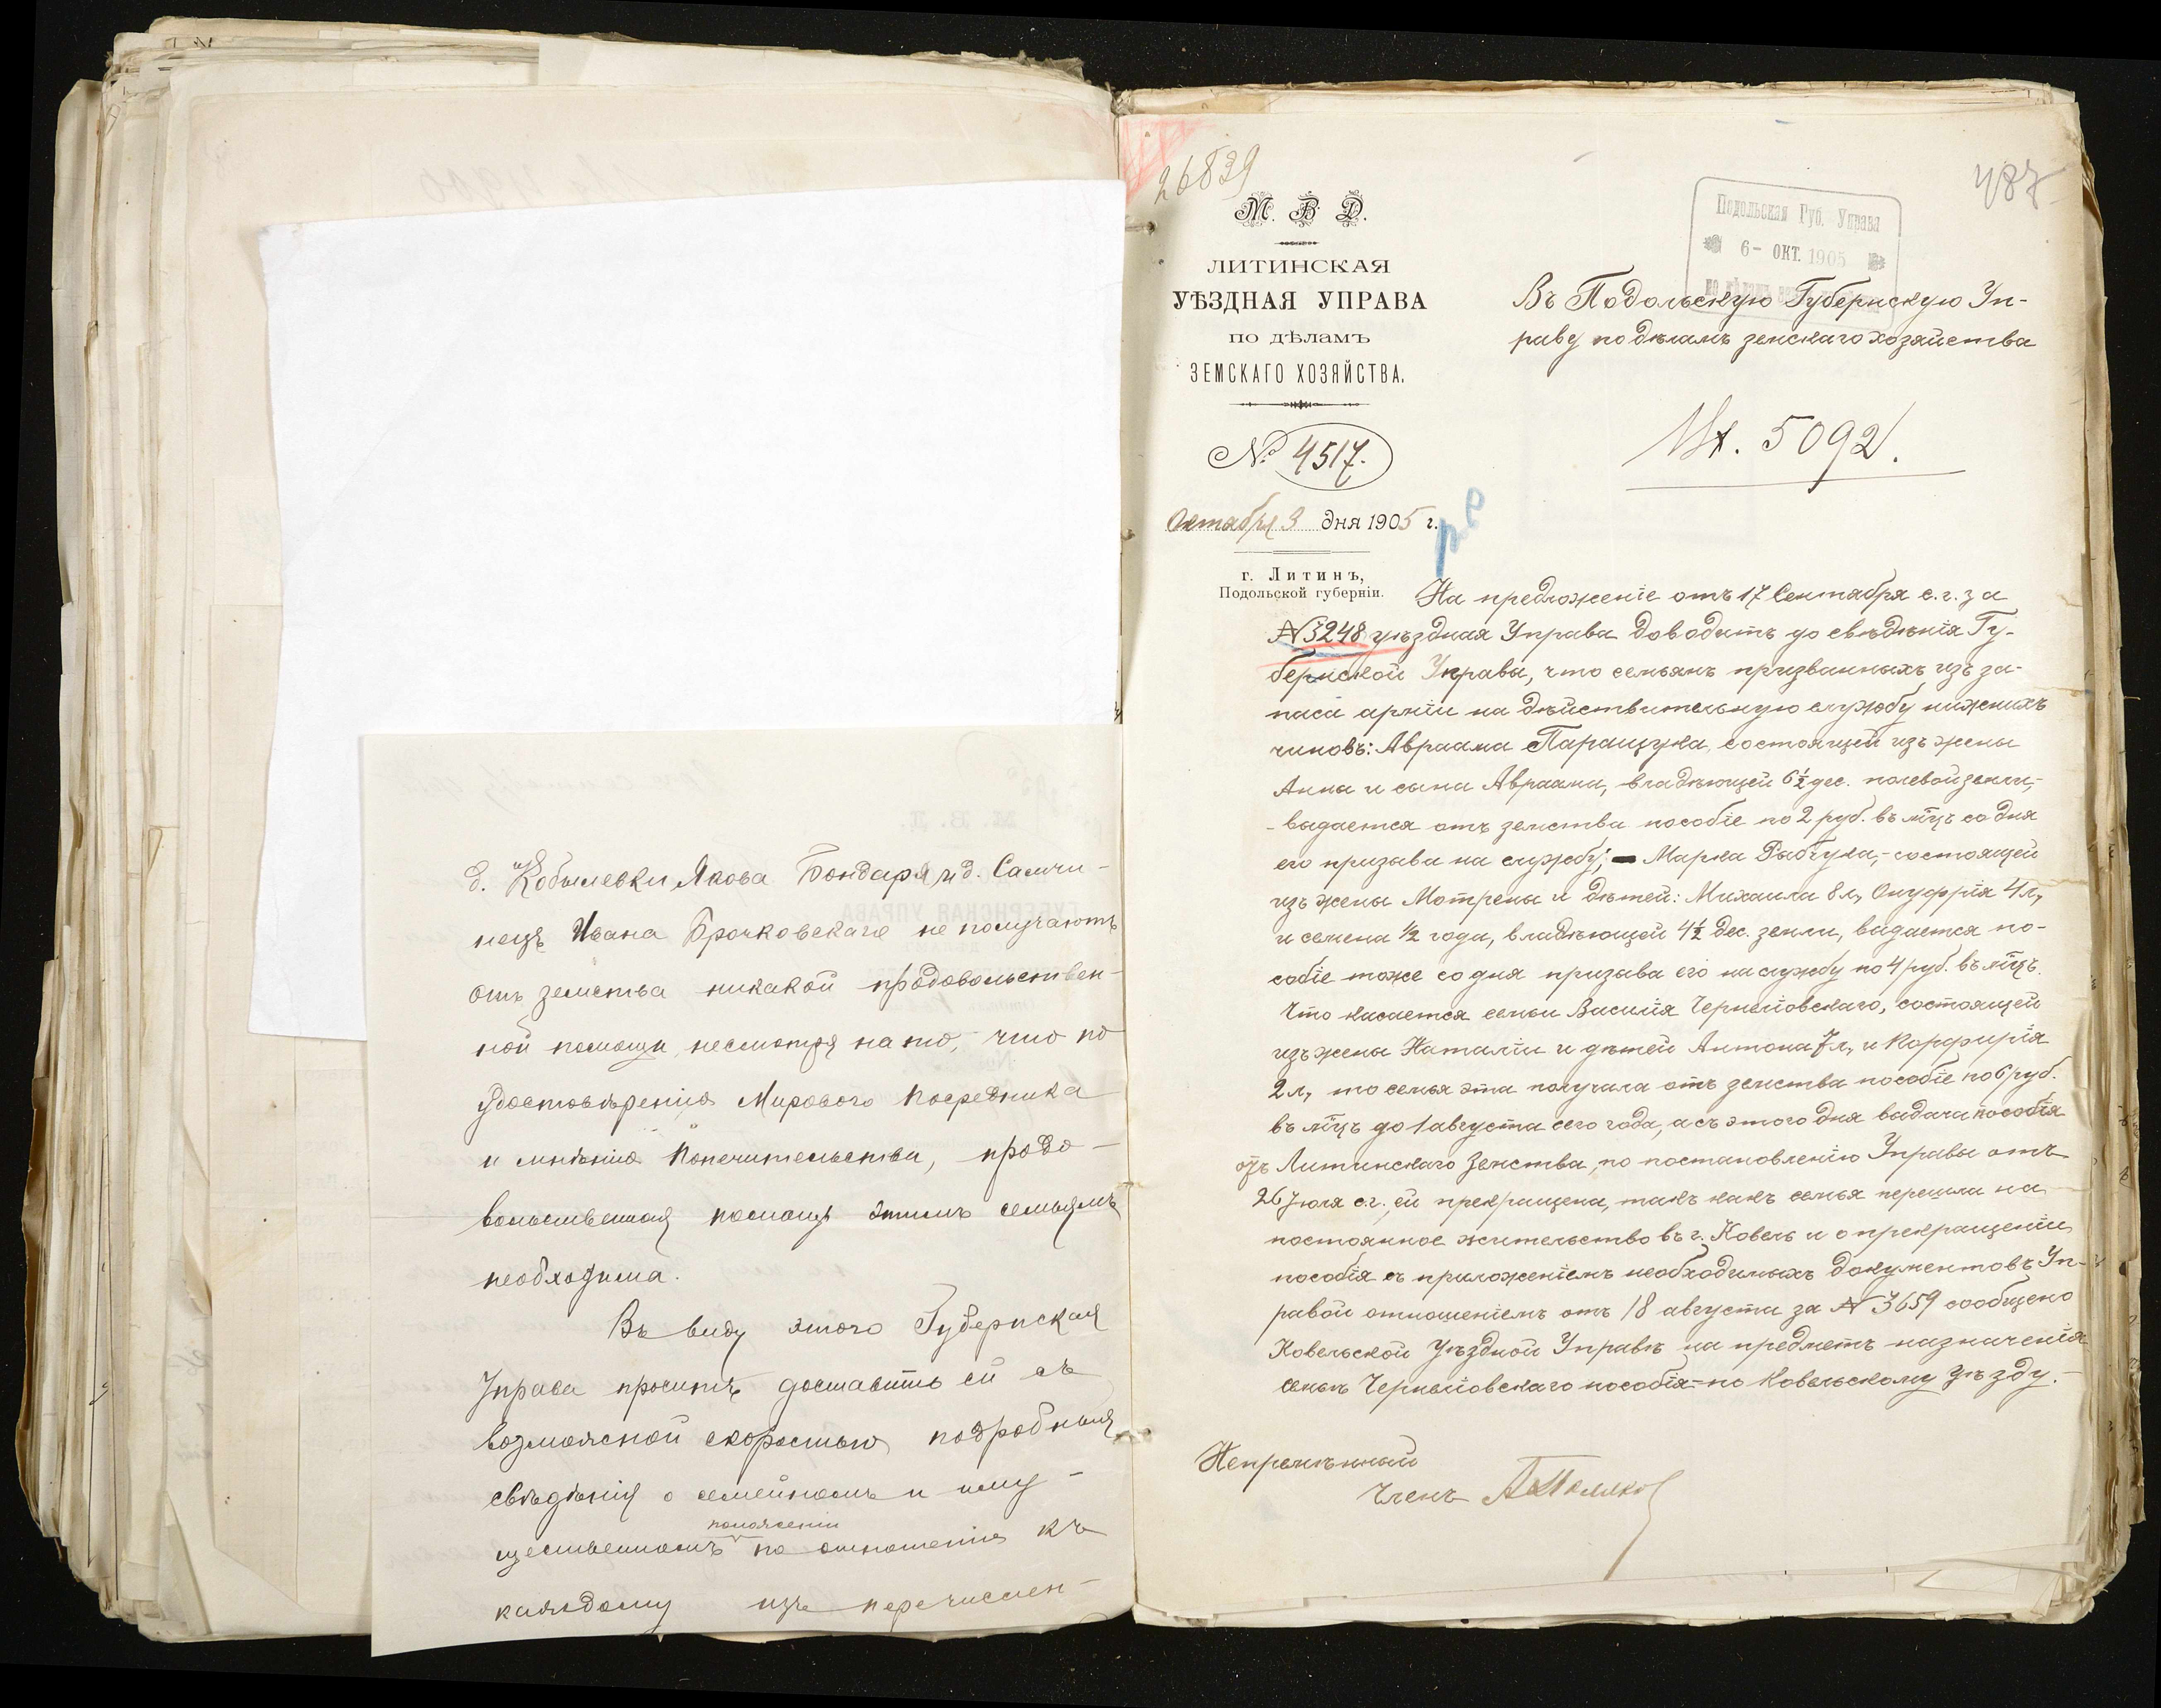 д. Кобылевки Якова Бондаря и д. Самчи-
нецъ Ивана Брочковскаго не получаютъ
отъ земства никакой продовольствен-
ной помощи, несмотря на то, что по
удостовѣренію Мирового Посредника
и мнѣнію Попечительства, продо-
вольственная помощь этимъ семьямъ
необходима.
Въ виду этого Губернская
Управа проситъ доставить ей съ
возможной скоростью подробныя
свѣдѣнія о семейномъ и иму-
положеніи
щественномъ по отношенію къ
каждому изъ перечислен-
26839
487
М. В. Д.
ЛИТИНСКАЯ
УѢЗДНАЯ УПРАВА
ПО ДѢЛАМЪ
ЗЕМСКАГО ХОЗЯЙСТВА.
№ 4517.
Октября 3 дня 1905 г.
г. Литинъ,
Подольской губерніи.
Подольская Губ. Управа
6- ОКТ. 1905
Въ Подольскую Губернскую Уп-
раву по дѣламъ земскаго хозяйства
Вх. 5092.
На предложеніе отъ 17 Сентября с. г. за
№ 3248 уѣздная Управа доводитъ до свѣдѣнія Гу-
бернской Управы, что семьямъ призванныхъ изъ за-
паса арміи на дѣйствительную службу нижнихъ
чиновъ: Авраама Паращука, состоящей изъ жены
Анны и сына Авраама, владѣющей 6½ дес. полевой земли,-
- выдается отъ земства пособіе по 2 руб. въ мѣц. со дня
его призыва на службу; - Марка Рыбчука, - состоящей
изъ жены Мотрены и дѣтей: Михаила 8 л., Онуфрія 4 л.,
и семена ½ года, владѣющей 4½ дес. земли, выдается по-
собіе тоже со дня призыва его на службу по 4 руб. въ мѣц.
Что касается семьи Василія Черніовскаго, состоящей
изъ жены Наталіи и дѣтей Антона 7 л., и Порфирія
2 л., то семья эта получала отъ земства пособіе по 6 руб.
въ мѣц. до 1 августа сего года, а съ этого дня выдача пособія
отъ Литинскаго Земства, по постановленію Управы отъ
26 Іюля с. г., ей прекращена, такъ какъ семья перешла на
постоянное жительство въ г. Ковель и о прекращеніи
пособія съ приложеніемъ необходимыхъ документовъ Уп-
равой отношеніемъ отъ 18 августа за № 3659 сообщено
Ковельской Уѣздной Управѣ на предметъ назначенія
семьѣ Черніовскаго пособія - по Ковельскому уѣзду. -
Непремѣнный
Членъ